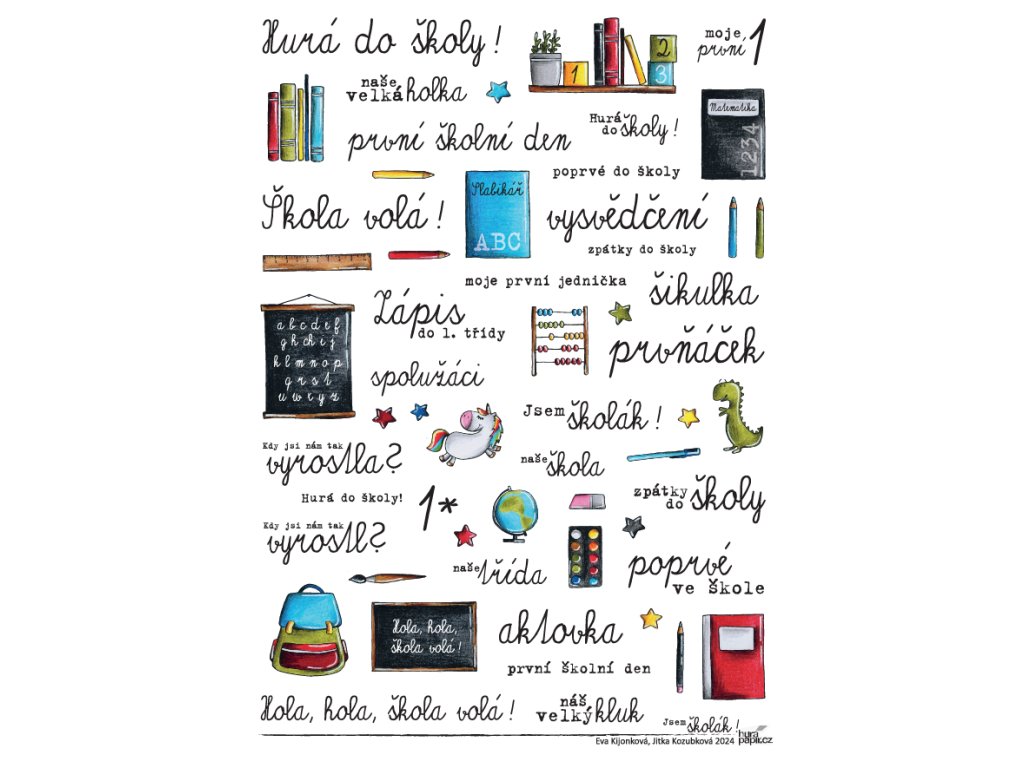 Hurá do školy!
1
2
3
moje
první 1
naše
velká holka
Matematika
1234
první školní den
Hurá
do školy!
poprvé do školy
Slabikář
ABC
Škola volá!
vysvědčení
zpátky do školy
moje první jednička
šikulka
Zápis
do 1. třídy
prvňáček
a b c d e f
g h ch i j
k l m n o p
q r s t
u v w x y z
spolužáci
Jsem školák!
Kdy jsi nám tak
vyrostla?
naše škola
Hurá do školy!
1*
zpátky
do školy
Kdy jsi nám tak
vyrostl?
naše třída
poprvé
ve škole
Hola, hola,
škola volá!
aktovka
první školní den
Hola, hola, škola volá!
náš
velký kluk
Jsem školák!
Eva Kijonková, Jitka Kozubková 2024
hurá
papír.cz